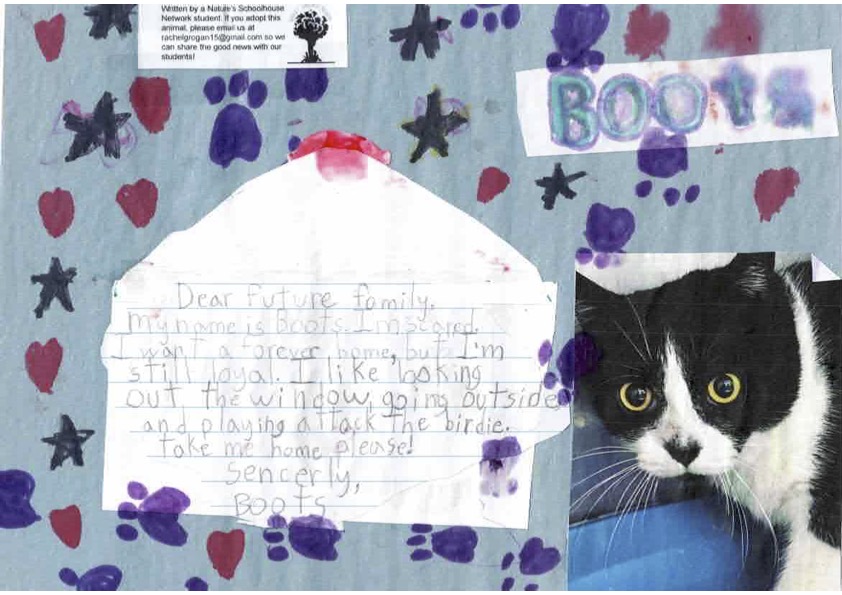 Written by a Nature's Schoolhouse
Network student. If you adopt this
animal, please email us at
rachelgrogan15@gmail.com so we
can share the good news with our
students!
Boots
Dear future family,
my name is Boots. I'm scared.
I want a forever home, but I'm
still loyal. I like looking
out the window, going outside
and playing attack the birdie.
Take me home please!
Sencerly,
Boots